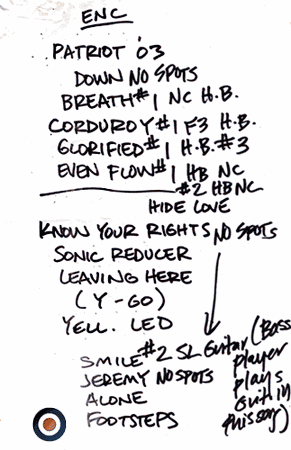 ENC
PATRIOT '03
DOWN NO SPOTS
BREATH #1 NC H.B.
CORDUROY #1 F3 H.B.
GLORIFIED #1 H.B. #3
EVEN FLOW #1 HB NC
#2 HB NC
HIDE LOVE
KNOW YOUR RIGHTS NO SPOTS
SONIC REDUCER
LEAVING HERE
(Y-GO)
YELL. LED
SMILE #2 SL Guitar (Bass
player
plays
JEREMY NO SPOTS
ALONE
FOOTSTEPS